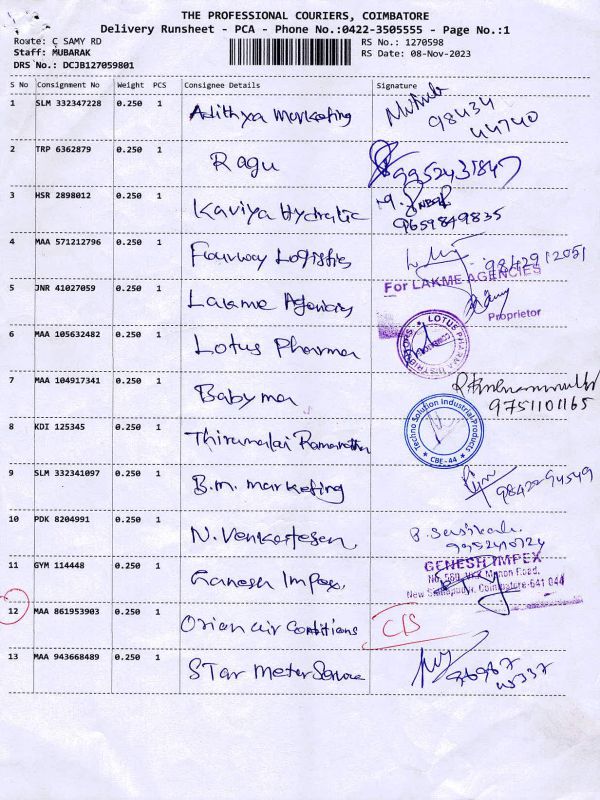 THE PROFESSIONAL COURIERS, COIMBATORE
Delivery Runsheet - PCA - Phone No.:0422-3505555 - Page No.:1
Route: C SAMY RD
RS No.: 1270598
Staff: MUBARAK
RS Date: 08-Nov-2023
DRS No.: DCJB127059801
S No Consignment No Weight PCS Consignee Details Signature
1 SLM 332347228 0.250 1 Adithya Marketing 98434
44740
2 TRP 6362879 0.250 1 Ragu 9952431847
3 HSR 2898012 0.250 1 Kaviya Hydralic
9659849835
4 MAA 571212796 0.250 1 Fourway Logistics 9842912051
For LAKME AGENCIES
5 JNR 41027059 0.250 1 Lakme Agencies
Proprietor
6 MAA 105632482 0.250 1 Lotus Pharma
LOTUS PHARMA DISTRIBUTORS
7 MAA 104917341 0.250 1 Baby ma
9751101165
8 KDI 125345 0.250 1 Thirumalai Ramanathan
Techno Solution Industrial Products
CBE-44
9 SLM 332341097 0.250 1 B.M. Marketing 98422-94549
10 PDK 8204991 0.250 1 N. Venkatesan B. Sasikala
9952410724
11 GYM 114448 0.250 1 Ganesh Impex,
GENESH IMPEX
Coimbatore-641 044
12 MAA 861953903 0.250 1 Orian air Conditions C/S
13 MAA 943668489 0.250 1 STar Meter Service 96967